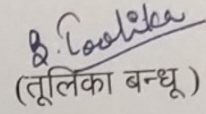 B. Toolika
(तूलिका बन्धू)